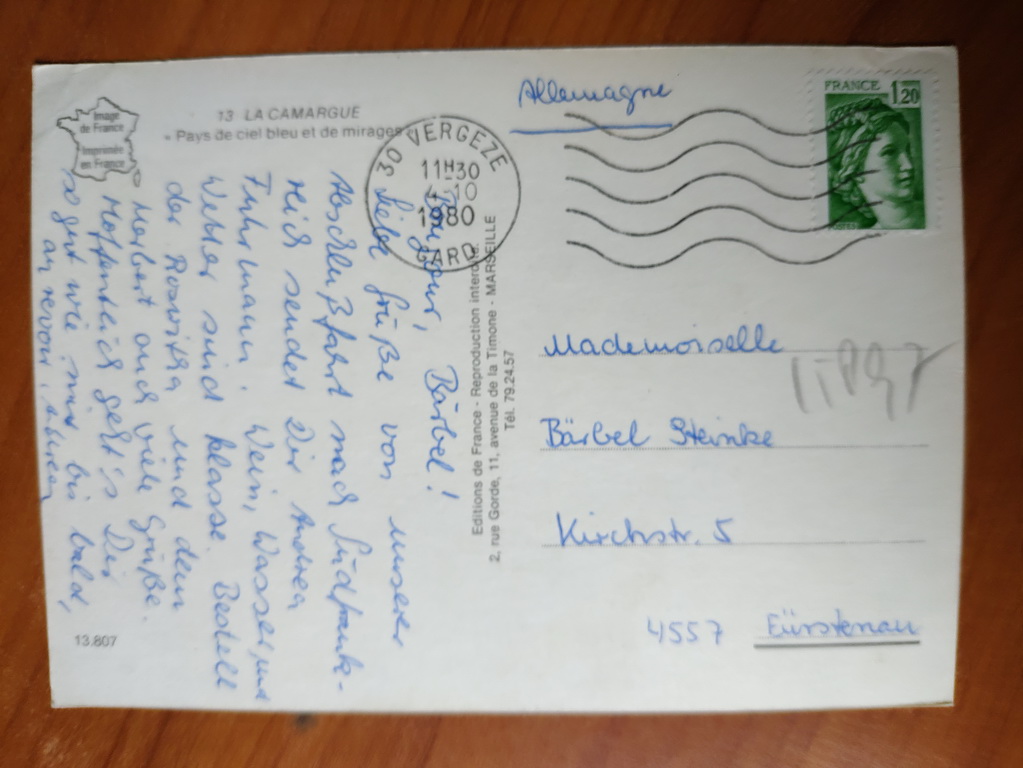 Image
de France
Imprimée
en France
13 LA CAMARGUE
« Pays de ciel bleu et de mirages
30 VERGEZE
11H30
4-10
1980
GARD
Allemagne
FRANCE 1,20
Bärbel!
Liebe Grüße von unserer
Abschlußfahrt nach Südfrank-
reich sendet Dir Andrea
Fuhrmann! Wein, Wasser und
Wetter sind klasse. Bestell
der Roswitha und dem
Herbert auch viele Grüße.
Hoffentlich geht's Dir
so gut wie mir bis bald,
au revoir,
Editions de France - Reproduction interdite.
2, rue Gorde, 11, avenue de la Timone - MARSEILLE
Tél. 79.24.57
Mademoiselle
Bärbel Steinke
Kirchstr. 5
4557 Fürstenau
13.807